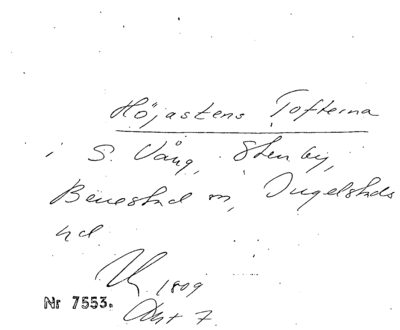 Höjastens Tofterna
i S. Vång, Stenby,
Benestad sn, Ingelstads
hd
1809
Nr 7553. Akt 7